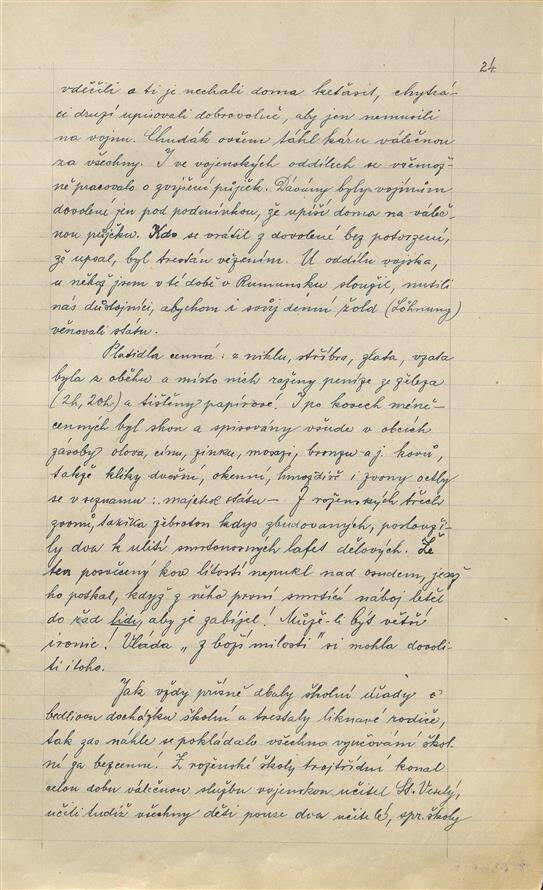 24.
vděčili a ti je nechali doma keťasit, chytrá-
ci druzí upisovali dobrovolně, aby jen nemusili
na vojnu. Chudák ovšem táhl káru válečnou
za všechny. I ve vojenských oddílech se všemož-
ně pracovalo o zvýšení půjček. Dávány byly vojínům
dovolené jen pod podmínkou, že upíší doma na váleč-
nou půjčku. Kdo se vrátil z dovolené bez potvrzení,
že upsal, byl trestán vězením. U oddílu vojska,
u něhož jsem v té době v Rumunsku sloužil, nutili
nás důstojníci, abychom i svůj denní žold (Löhnung)
věnovali státu.
Platidla cenná: z niklu, stříbra, zlata, vzata
byla z oběhu a místo nich raženy peníze ze železa
(2h, 20h) a tištěny papírové! I po kovech méně-
cenných byl shon a spisovány všude v obcích
zásoby olova, cínu, zinku, mosazi, bronzu a j. kovů,
takže kliky dveřní, okenní, hmoždíře i zvony octly
se v seznamu: majetek státu – Z roženských třech
zvonů, takřka žebrotou kdys zbudovaných, poslouži-
ly dva k ulití smrtonosných lafet dělových. Že
ten posvěcený kov lítostí nepukl nad osudem, jenž
ho potkal, když z něho první smrtící náboj letěl
do řad lidu, aby je zabíjel! Může-li býti větší
ironie! Vláda „z boží milosti" si mohla dovoli-
ti i toho.
Jak vždy přísně dbaly školní úřady o
bedlivou docházku školní a trestaly liknavé rodiče,
tak zde náhle se pokládalo všechno vyučování škol-
ní za bezcenné. Z roženské školy trojtřídní konal
celou dobu válečnou službu vojenskou učitel St. Veselý,
učili tudíž všechny děti pouze dva učitelé, spr. školy